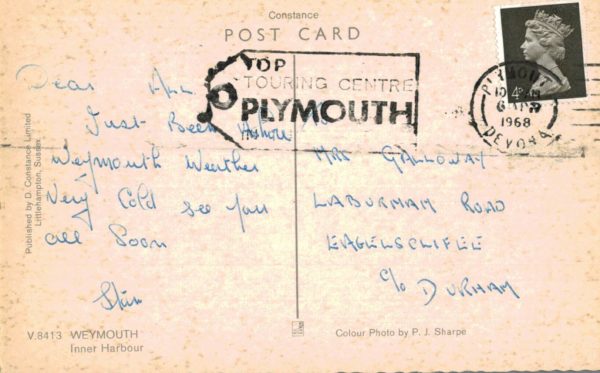 Constance
POST CARD
TOP
TOURING CENTRE
PLYMOUTH
PLYMOUTH
6 APR
1968
DEVON
4D
Dear All
Just Been
Weymouth Weather
Very Cold see you
all Soon
Stan
MRS GALLOWAY
LABURMAM ROAD
EAGELSCLIFEE
C/o DURHAM
Published by D. Constance Limited
Littlehampton, Sussex.
V.8413 WEYMOUTH
Inner Harbour
Colour Photo by P. J. Sharpe